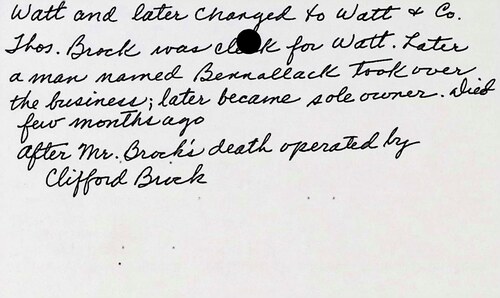 Watt and later changed to Watt & Co.
Thos. Brock was clerk for Watt. Later
a man named Bennallack took over
the business; later became sole owner. Died
few months ago
After Mr. Brock's death operated by
Clifford Brock